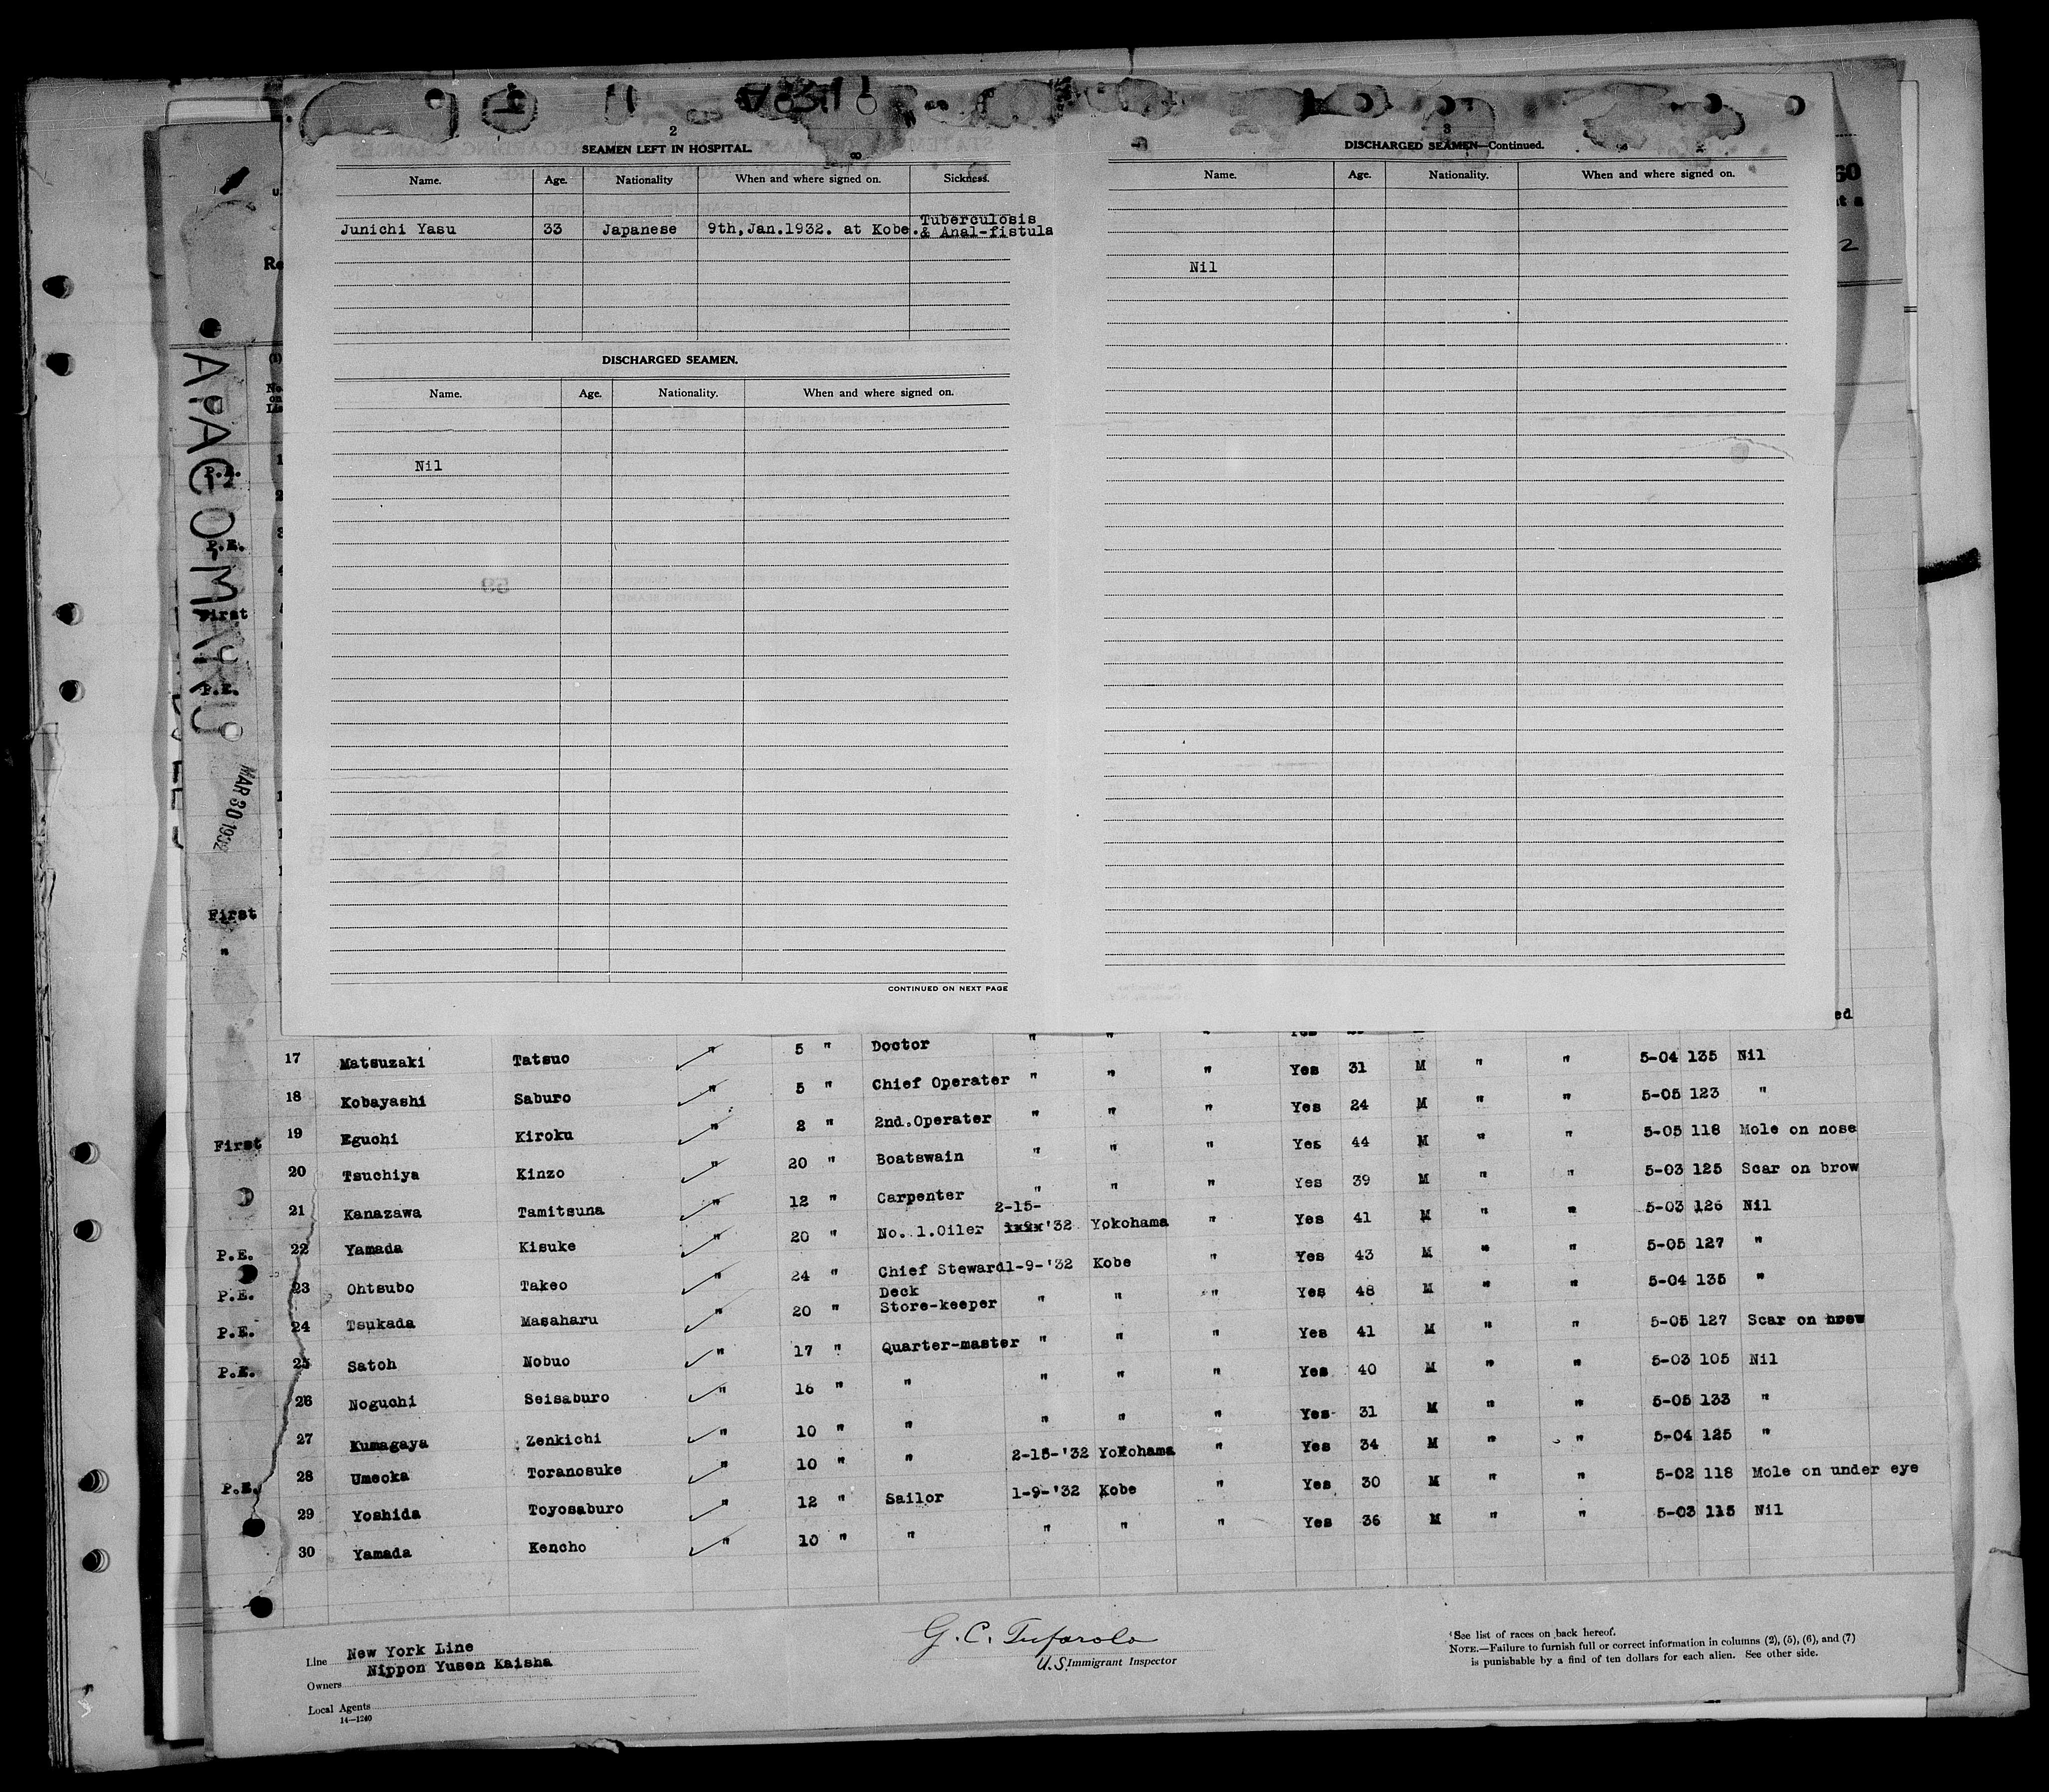 2
SEAMEN LEFT IN HOSPITAL.
Name. Age. Nationality When and where signed on. Sickness.
Junichi Yasu 33 Japanese 9th,Jan.1932. at Kobe. Tuberculosis
& Anal-fistula
DISCHARGED SEAMEN.
Name. Age. Nationality. When and where signed on.
Nil
CONTINUED ON NEXT PAGE
3
DISCHARGED SEAMEN—Continued.
Name. Age. Nationality. When and where signed on.
Nil
MAR 30 1932
P.E.
P.E.
First
P.E.
First
"
ed
17 Matsuzaki Tatsuo " 5 " Doctor " " " Yes
18 Kobayashi Saburo " 5 " Chief Operater " " " Yes 31 M " " 5-04 135 Nil
First 19 Eguchi Kiroku " 2 " 2nd.Operater " " " Yes 24 M " " 5-05 123 "
20 Tsuchiya Kinzo " 20 " Boatswain " " " Yes 44 M " " 5-05 118 Mole on nose
21 Kanazawa Tamitsuna " 12 " Carpenter " " " Yes 39 M " " 5-03 125 Scar on brow
2-15-
P.E. 22 Yamada Kisuke " 20 " No. 1.Oiler '32 Yokohama " Yes 41 M " " 5-03 126 Nil
P.E. 23 Ohtsubo Takeo " 24 " Chief Steward 1-9-'32 Kobe " Yes 43 M " " 5-05 127 "
P.E. 24 Tsukada Masaharu " 20 " Deck
Store-keeper " " " Yes 48 M " " 5-04 135 "
P.E. 25 Satoh Nobuo " 17 " Quarter-master " " " Yes 41 M " " 5-05 127 Scar on brow
26 Noguchi Seisaburo " 16 " " " " " Yes 40 M " " 5-03 105 Nil
27 Kumagaya Zenkichi " 10 " " " " " Yes 31 M " " 5-05 133 "
P.E. 28 Umeoka Toranosuke " 10 " " 2-15-'32 Yokohama " Yes 34 M " " 5-04 125 "
29 Yoshida Toyosaburo " 12 " Sailor 1-9-'32 Kobe " Yes 30 M " " 5-02 118 Mole on under eye
30 Yamada Kencho " 10 " " " " " Yes 36 M " " 5-03 115 Nil
Line New York Line
Owners Nippon Yusen Kaisha
Local Agents
14—1240
G. C. Tufarolo
U.S. Immigrant Inspector
See list of races on back hereof.
NOTE.—Failure to furnish full or correct information in columns (2), (5), (6), and (7)
is punishable by a find of ten dollars for each alien. See other side.